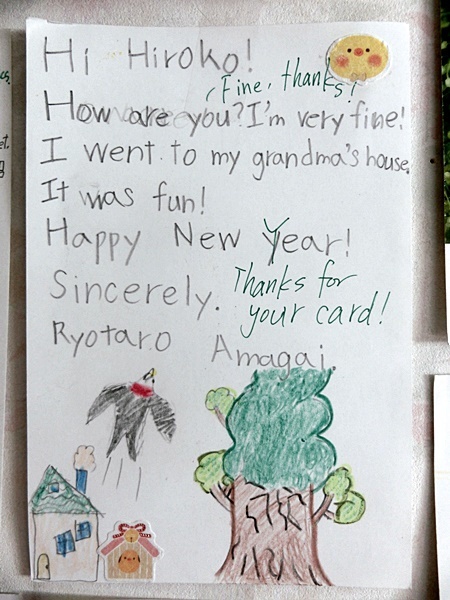 Hi Hiroko!
Fine, thanks!
How are you? I'm very fine!
I went to my grandma's house.
It was fun!
Happy New Year!
Sincerely.
Thanks for
your card!
Ryotaro Amagai.